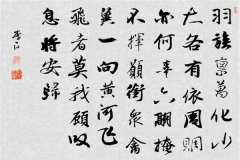 羽族稟萬化小
大各有依周周
亦何辜六翮掩
不揮願銜衆禽
翼一向黄河飞
飛者莫我顧叹
息将安歸